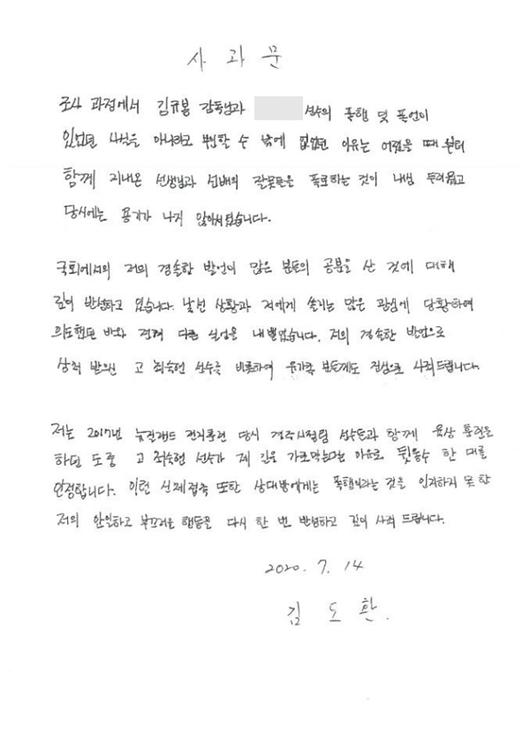 사 과 문
조사 과정에서 김규봉 감독님과 선수의 폭행 및 폭언이
있었던 사실을 아니라고 부인할 수 밖에 없었던 이유는 어렸을 때 부터
함께 지내온 선생님과 선배의 잘못들을 폭로하는 것이 내심 두려웠고
당시에는 용기가 나지 않아서였습니다.
국회에서의 저의 경솔한 발언이 많은 분들의 공분을 산 것에 대해
깊이 반성하고 있습니다. 낯선 상황과 저에게 쏠리는 많은 관심에 당황하여
의도했던 바와 전혀 다른 실언을 내뱉었습니다. 저의 경솔한 발언으로
상처 받으신 고 최숙현 선수를 비롯하여 유가족 분들께도 진심으로 사죄드립니다.
저는 2017년 뉴질랜드 전지훈련 당시 경주시청팀 선수들과 함께 육상 훈련을
하던 도중 고 최숙현 선수가 제 길을 가로막는다는 이유로 뒷통수 한 대를
인정합니다. 이런 신체접촉 또한 상대방에게는 폭행이라는 것을 인지하지 못한
저의 안일하고 부끄러운 행동을 다시 한 번 반성하고 깊이 사죄 드립니다.
2020. 7. 14
김 도 환.